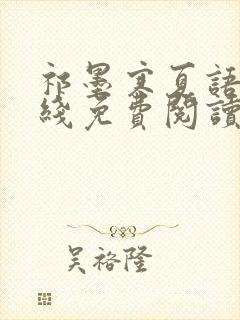 祁墨寒夏語
綫免費閱讀
吴裕隆